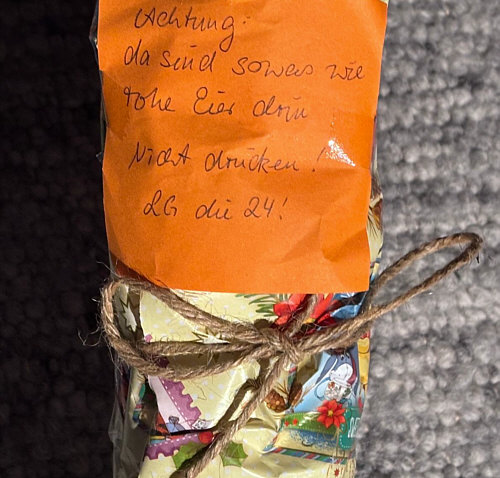 Achtung:
da sind sowas wie
rohe Eier drin
Nicht drücken!
LG die 24!